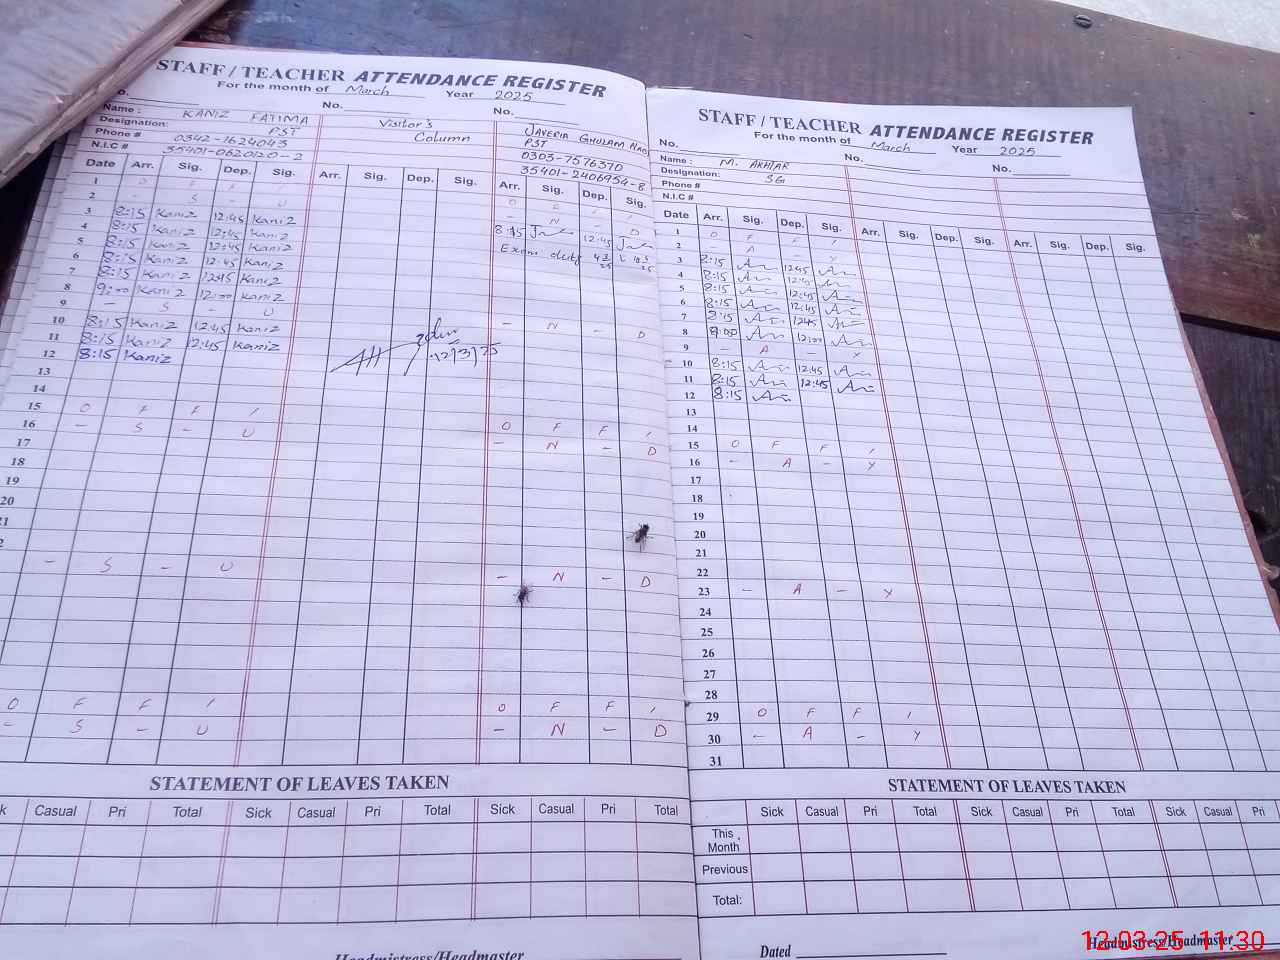 STAFF / TEACHER ATTENDANCE REGISTER
For the month of March Year 2025
No. No.
Name : KANIZ FATIMA Visitor's JAVERIA GHULAM
Designation: PST Column PST
Phone # 0342-1624043 0303-7576370
N.I.C # 35401-0620120-2 35401-2406954-8
Date Arr. Sig. Dep. Sig. Arr. Sig. Dep. Sig. Arr. Sig. Dep. Sig.
1 O F F , O F F ,
2 - S - U - N - D
3 8:15 Kaniz 12:45 Kaniz 8:15 12:45
4 8:15 Kaniz 12:45 Kaniz Exam duty
5 8:15 Kaniz 12:45 Kaniz
6 8:15 Kaniz 12:45 Kaniz
7 8:15 Kaniz 12:45 Kaniz
8 9:00 Kaniz 12:00 Kaniz
9 - S - U - N - D
10 8:15 Kaniz 12:45 Kaniz
11 8:15 Kaniz 12:45 Kaniz
12 8:15 Kaniz 12/3/25
13
14
15 O F F , O F F ,
16 - S - U - N - D
17
18
19
20
21
2
- S - U - N - D
O F F , O F F ,
- S - U - N - D
STATEMENT OF LEAVES TAKEN
k Casual Pri Total Sick Casual Pri Total Sick Casual Pri Total
Headmistress/Headmaster
STAFF / TEACHER ATTENDANCE REGISTER
For the month of March Year 2025
No. No. No.
Name : M. AKHTAR
Designation: SG
Phone #
N.I.C #
Date Arr. Sig. Dep. Sig. Arr. Sig. Dep. Sig. Arr. Sig. Dep. Sig.
1 O F F ,
2 - A - Y
3 8:15 12:45
4 8:15 12:45
5 8:15 12:45
6 8:15 12:45
7 8:15 12:45
8 9:00 12:00
9 - A - Y
10 8:15 12:45
11 8:15 12:45
12 8:15
13
14
15 O F F ,
16 - A - Y
17
18
19
20
21
22
23 - A - Y
24
25
26
27
28
29 O F F ,
30 - A - Y
31
STATEMENT OF LEAVES TAKEN
Sick Casual Pri Total Sick Casual Pri Total Sick Casual Pri
This Month
Previous
Total:
Dated Headmistress/Headmaster
12.03.25 11:30